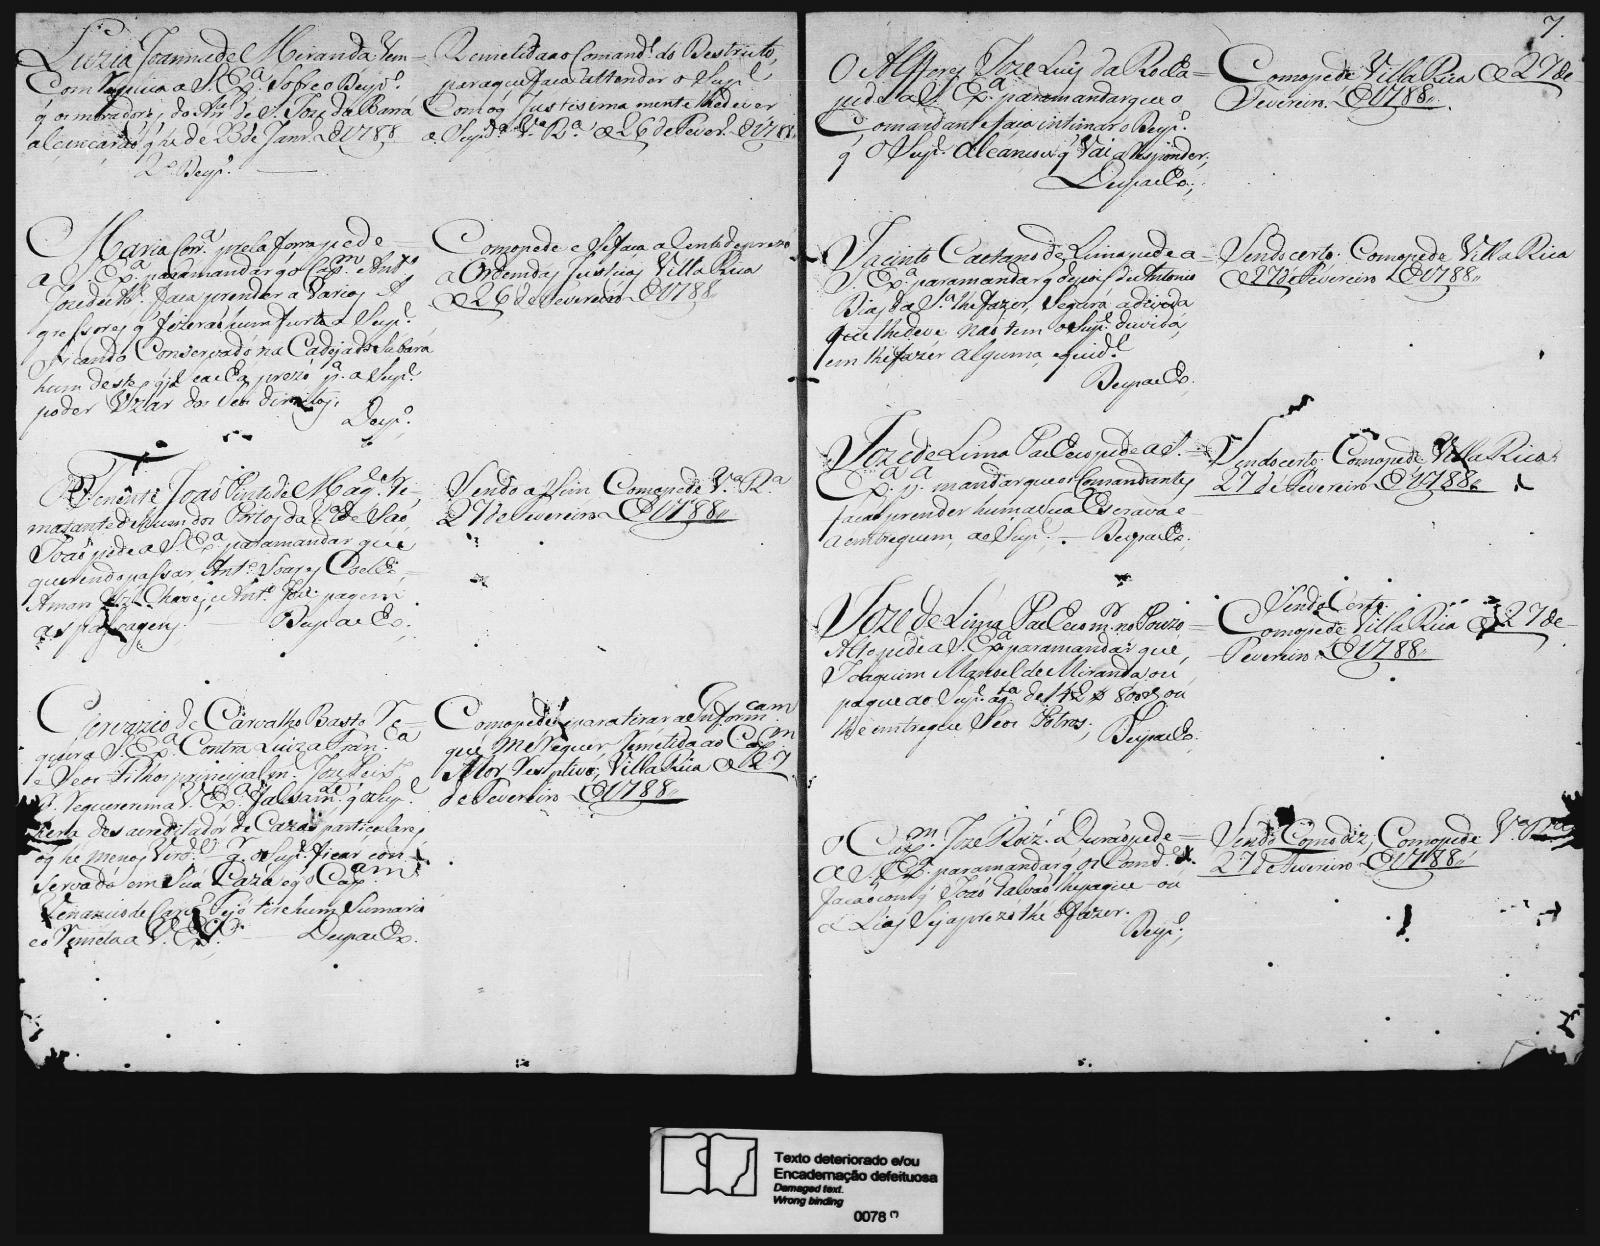 Luzia Joanna de Miranda tem
Com a S. Exa. Sobre o Desp.
q os moradores do Arr. de S. Joze da Barra
alcançarão q he de 23 de Janr. de 1788
2o Desp.
Remetida ao Comand.e do Destricto,
para que faça attender o Sup.e
Como q justissima mente lhe dever
a Sup.da Va. Ra. a 26 de Fever. de 1788
Maria Corr.a preta forra pede
a S. Exa. para mandar q o Cap.m Ant.o
Joze de faça prender a varios A
gressores q fizeraõ hum furto a Sup.e
ficando Conservado na Cadeja do Sabará
hum destes q já eacha prezo p.a a Sup.e
poder Uzar dos Seos direitos.
Desp.o
Como pede e Se faça a
a Ordem das Justiças Villa Rica
a 26 de Fevereiro de 1788
O Tenente Joaõ Pinto de Mag.es Re
matante de hum dos Portos da de Saõ
Joaõ pede a S. Exa. para mandar que
querendo passar Ant.o Soares Coelho,
Chaves, e Ant.o Joze paguem
as passagens. Despacho.
Sendo assim Como pede Va. Ra.
27 de Fevereiro de 1788
Gervazio de Carvalho Basto Re
quer a S. Exa. Contra Luiza Fran.ca
e Seos Filhos principalm.e Joze
Requererem a V. Exa. falsam.te q a Sup.e
hera desacreditador de Cazas particulares
o q he menos Verd.e o Sup.e ficar con
servado em Sua Caza e q o Cap.am
Venancio de tire hum Sumario
e o Remeta a V. Exa. Despacho.
Como pede e para tirar a Inform.cam
que me Requer Remetida ao Cap.m
Mor Respetivo; Villa Rica a 27
de Fevereiro de 1788
7.
O Alfferes Joze Luis da Rocha
pede a S. Exa. para mandar que o
Comandante faça intimar o Desp.o
q o Sup.e alcançou q Vai a Responder;
Despacho;
Como pede Villa Rica a 27 de
Fevereiro de 1788
Jacinto Caetano de Lima pede a
S. Exa. para mandar q depois de Antonio
Dias da S.a lhe fazer, Segura a divida
que lhe deve naõ tem o Sup.e duvida,
em lhe fazer alguma equid.e
Despacho.
Sendo certo Como pede Villa Rica
a 27 de Fevereiro de 1788
Joze de Lima Pacheco pede a S.
Exa. p.a mandar que os Comandantes
façaõ prender huma sua Escrava e
a entreguem, ao Sup.e Despacho;
Sendo certo Como pede Villa Rica
27 de Fevereiro de 1788
Joze de Lima Pacheco m.or no Pouzo
Alto pede a S. Exa. para mandar que
Joaquim Manoel de Miranda ou
pague ao Sup.e a q.ta de 142$800 ou
lhe entregue Seos Potros;
Despacho.
Sendo Certo
Como pede Villa Rica a 27 de
Fevereiro de 1788
O Cap.m Joze Roiz. Duraõ pede
a S. Exa. para mandar q os Comd.es
façaõ com q Joaõ Galvaõ lhe pague ou
Seja prezo lhe o fazer.
Desp.o;
Sendo Como diz, Como pede Va. Rca
27 de Fevereiro de 1788
Texto deteriorado e/ou
Encadernação defeituosa
Damaged text.
Wrong binding
0078